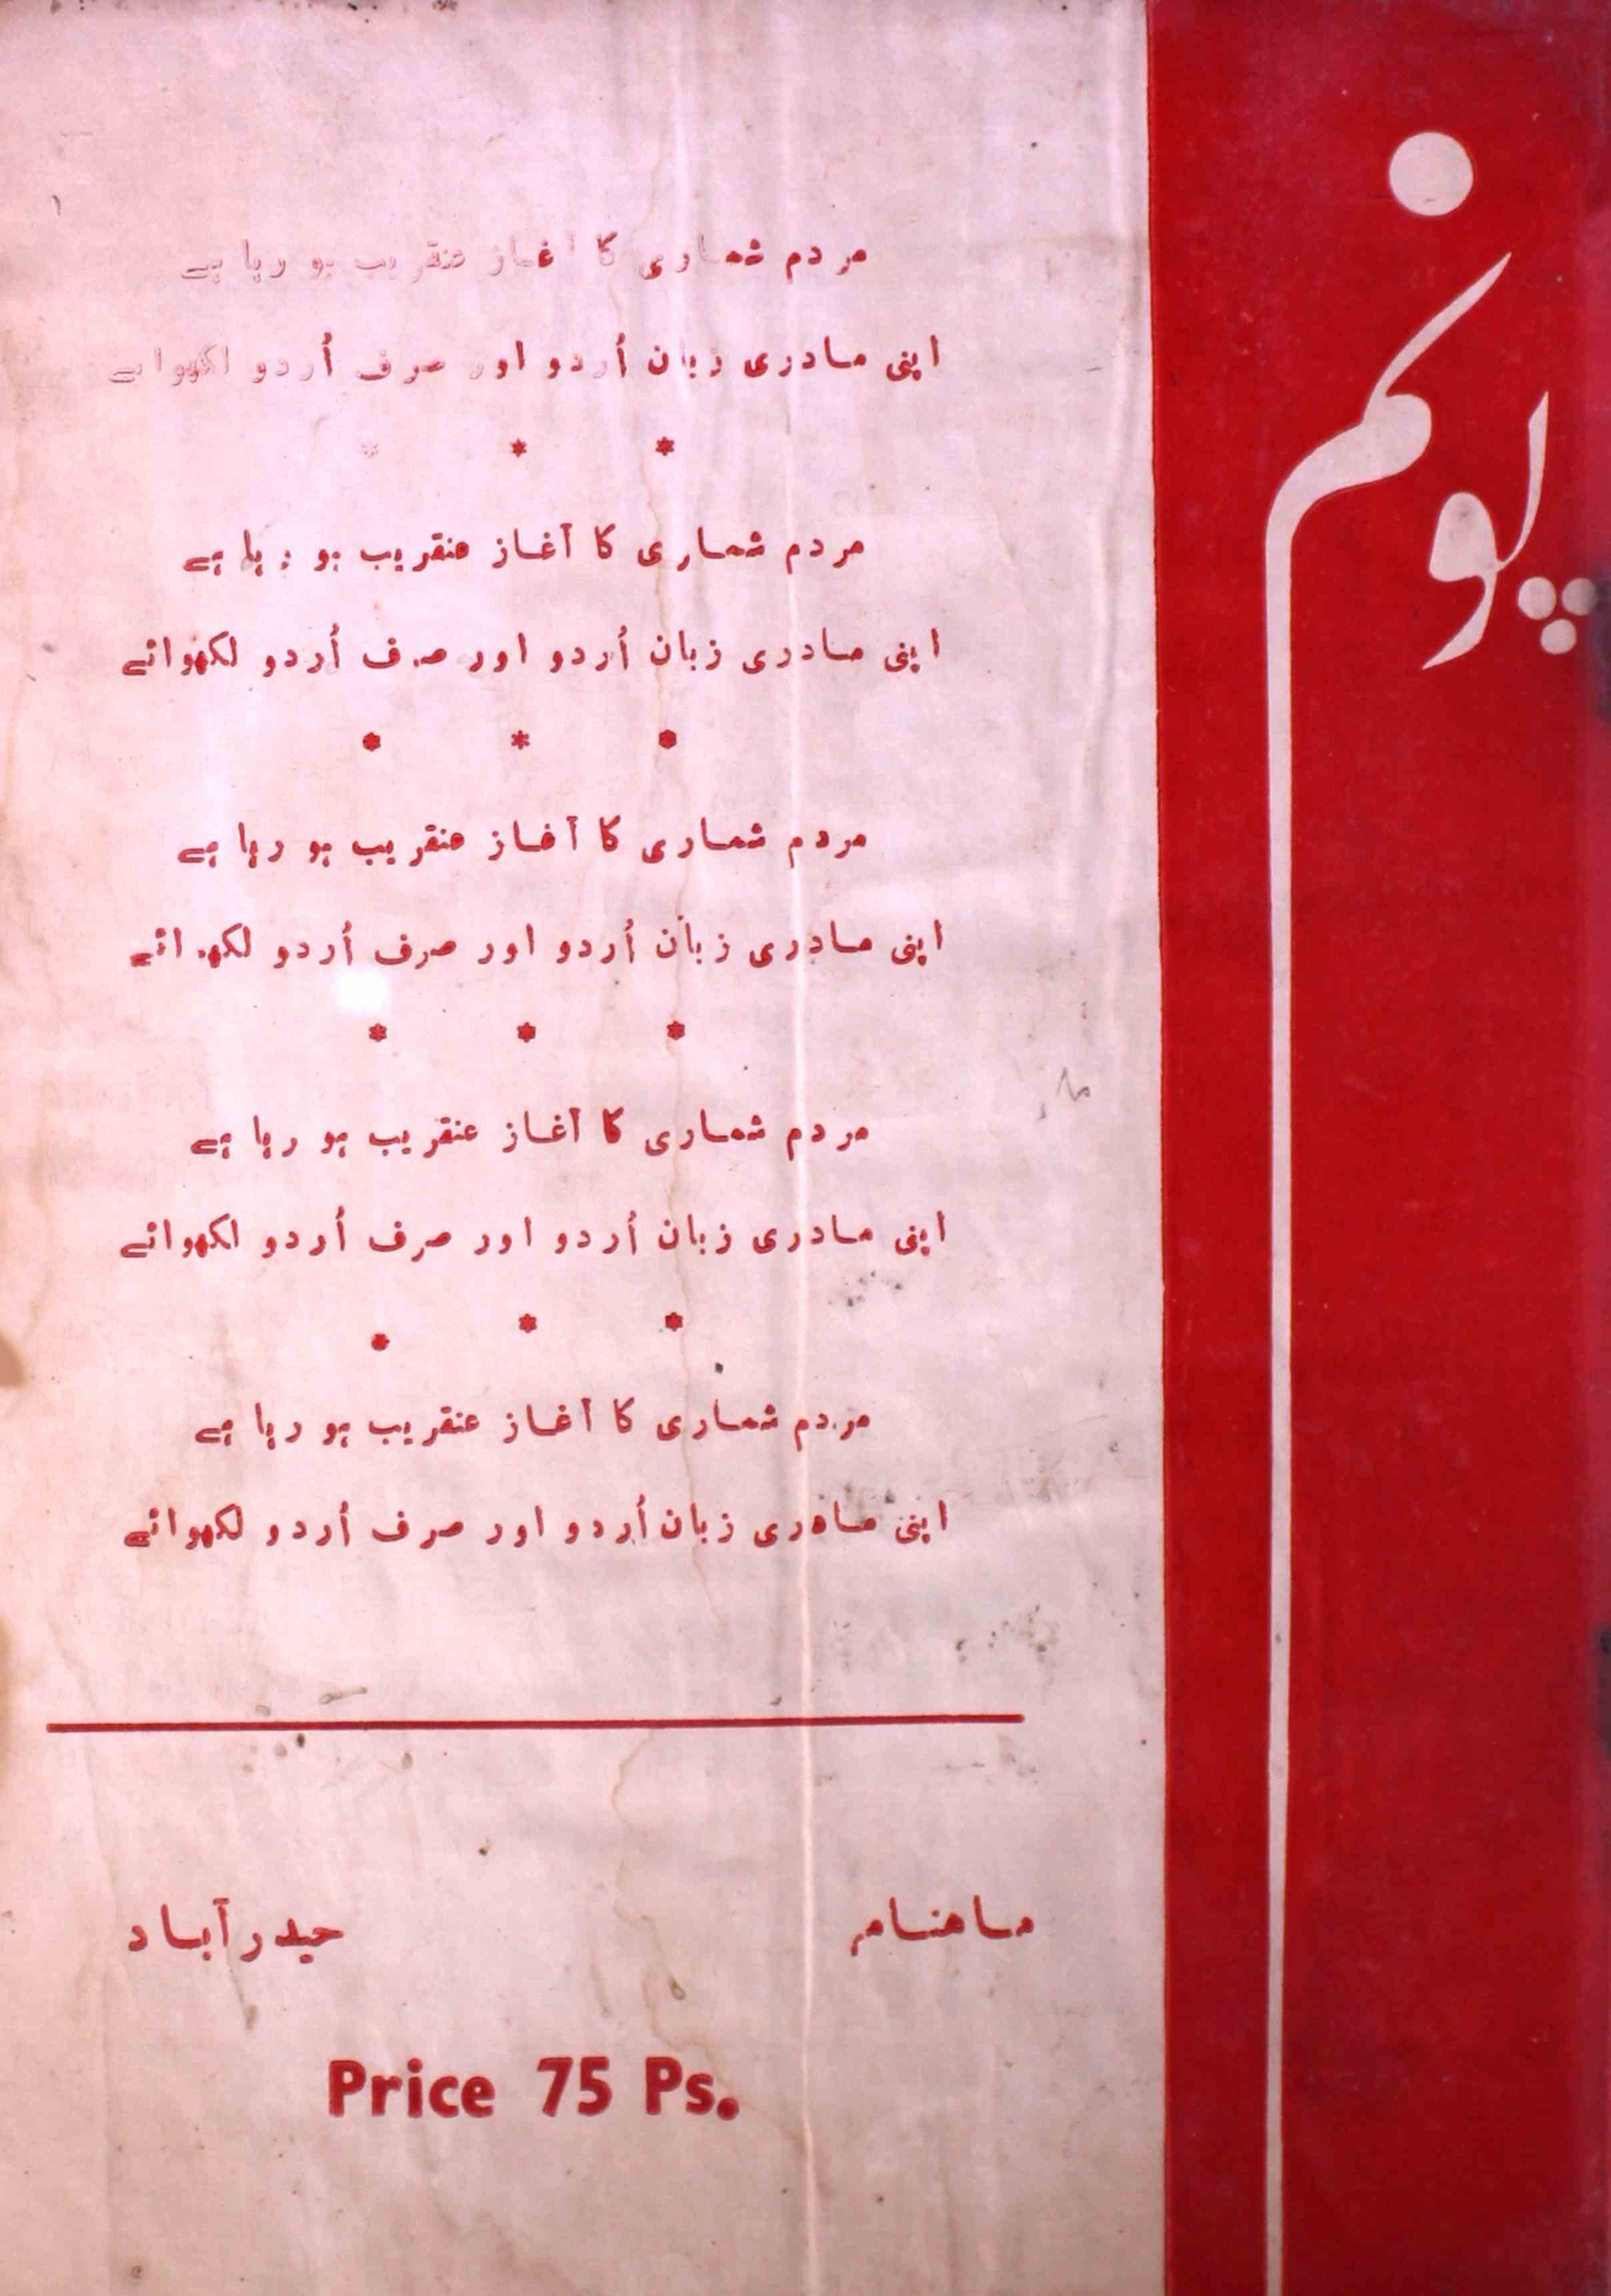 پونم
مردم شماری کا آغاز عنقریب ہو رہا ہے
اپنی مادری زبان اُردو اور صرف اُردو لکھوائے
* * *
مردم شماری کا آغاز عنقریب ہو رہا ہے
اپنی مادری زبان اُردو اور صرف اُردو لکھوائے
* * *
مردم شماری کا آغاز عنقریب ہو رہا ہے
اپنی مادری زبان اُردو اور صرف اُردو لکھوائے
* * *
مردم شماری کا آغاز عنقریب ہو رہا ہے
اپنی مادری زبان اُردو اور صرف اُردو لکھوائے
* * *
مردم شماری کا آغاز عنقریب ہو رہا ہے
اپنی مادری زبان اُردو اور صرف اُردو لکھوائے
ماہنامہ حیدرآباد
Price 75 Ps.